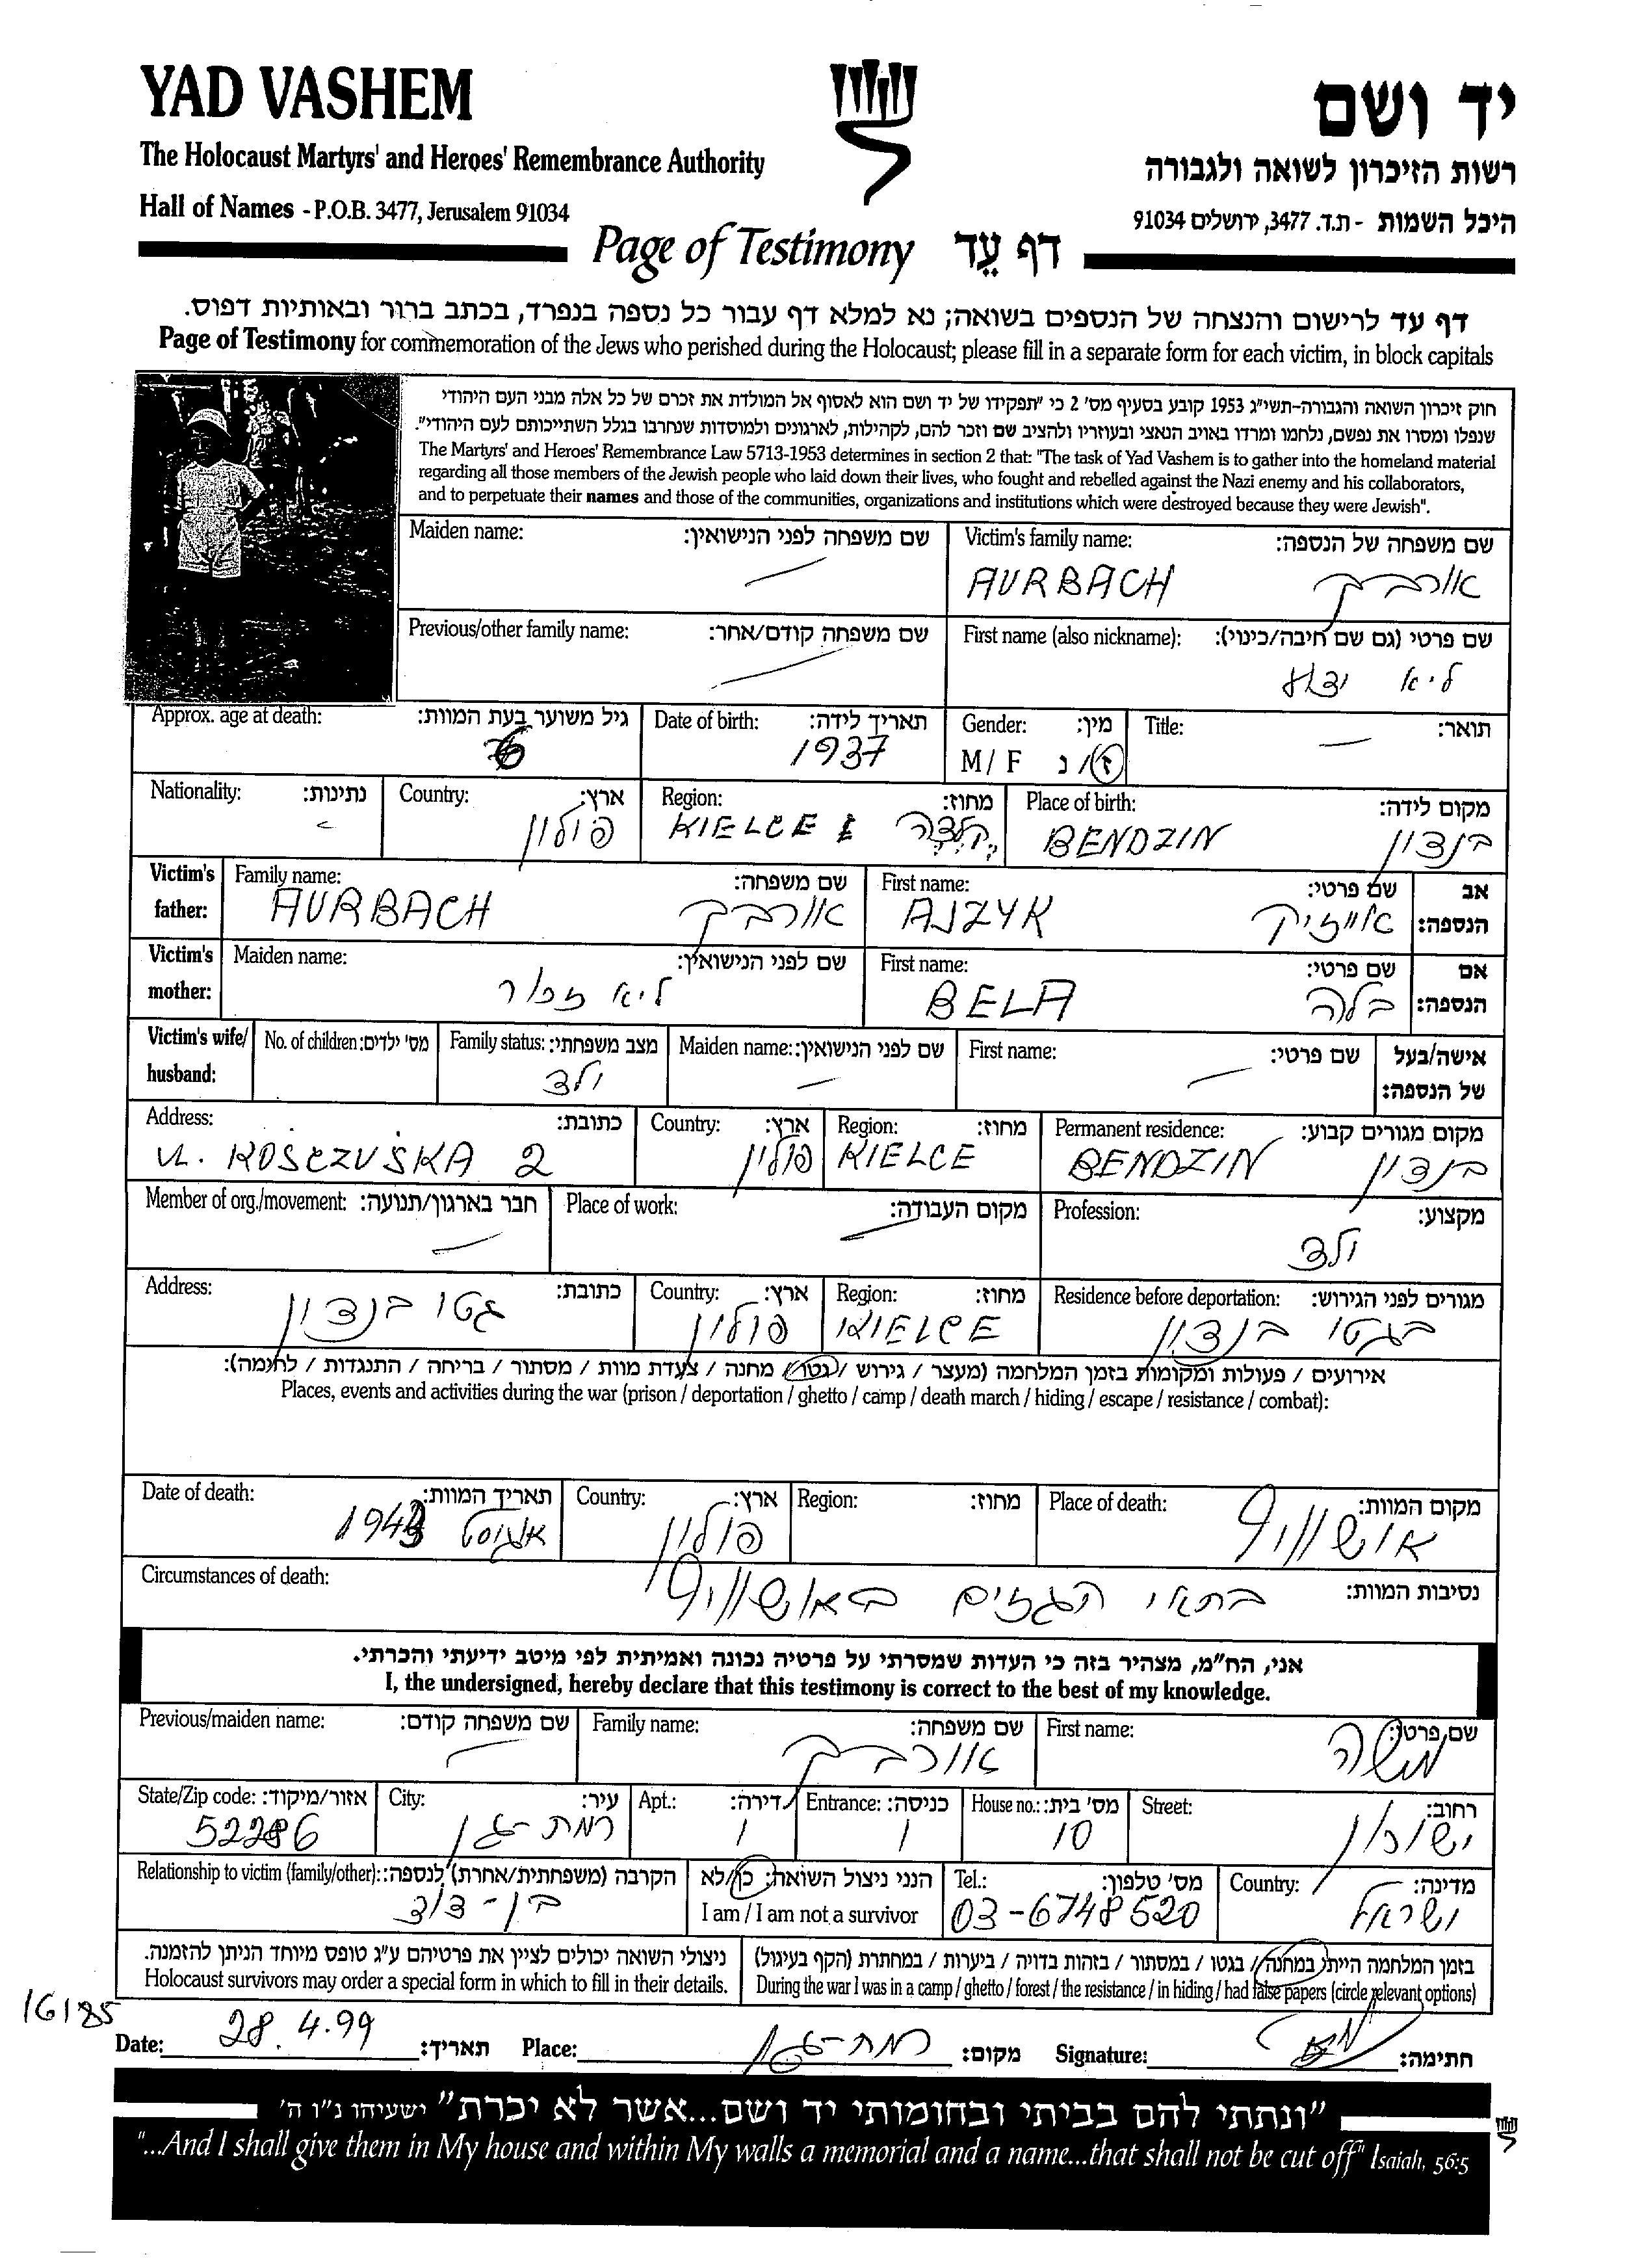 YAD VASHEM
יד ושם
The Holocaust Martyrs' and Heroes' Remembrance Authority
רשות הזיכרון לשואה ולגבורה
Hall of Names - P.O.B. 3477, Jerusalem 91034
היכל השמות - ת.ד. 3477, ירושלים 91034
Page of Testimony דף עֵד
דף עד לרישום והנצחה של הנספים בשואה; נא למלא דף עבור כל נספה בנפרד, בכתב ברור ובאותיות דפוס.
Page of Testimony for commemoration of the Jews who perished during the Holocaust; please fill in a separate form for each victim, in block capitals
חוק זיכרון השואה והגבורה-תשי"ג 1953 קובע בסעיף מס' 2 כי "תפקידו של יד ושם הוא לאסוף אל המולדת את זכרם של כל אלה מבני העם היהודי
שנפלו ומסרו את נפשם, נלחמו ומרדו באויב הנאצי ובעוזריו ולהציב שם וזכר להם, לקהילות, לארגונים ולמוסדות שנחרבו בגלל השתייכותם לעם היהודי".
The Martyrs' and Heroes' Remembrance Law 5713-1953 determines in section 2 that: "The task of Yad Vashem is to gather into the homeland material
regarding all those members of the Jewish people who laid down their lives, who fought and rebelled against the Nazi enemy and his collaborators,
and to perpetuate their names and those of the communities, organizations and institutions which were destroyed because they were Jewish".
Maiden name: שם משפחה לפני הנישואין:
Victim's family name: שם משפחה של הנספה:
AURBACH אורבך
Previous/other family name: שם משפחה קודם/אחר:
First name (also nickname): שם פרטי (גם שם חיבה/כינוי):
ליא
Approx. age at death: גיל משוער בעת המוות:
6
Date of birth: תאריך לידה:
1937
Gender: מין:
M / F ז / נ
Title: תואר:
Nationality: נתינות:
Country: ארץ:
פולין
Region: מחוז:
KIELCE קילצה
Place of birth: מקום לידה:
BENDZIN בנדזין
Victim's father: אב הנספה:
Family name: שם משפחה:
AURBACH אורבך
First name: שם פרטי:
AJZYK אייזיק
Victim's mother: אם הנספה:
Maiden name: שם לפני הנישואין:
לא זכור
First name: שם פרטי:
BELA בלה
Victim's wife/ husband: אישה/בעל של הנספה:
No. of children: מס' ילדים:
Family status: מצב משפחתי:
ילד
Maiden name: שם לפני הנישואין:
First name: שם פרטי:
Address: כתובת:
UL. KOSCZUSKA 2
Country: ארץ:
פולין
Region: מחוז:
KIELCE
Permanent residence: מקום מגורים קבוע:
BENDZIN בנדזין
Member of org./movement: חבר בארגון/תנועה:
Place of work: מקום העבודה:
Profession: מקצוע:
ילד
Address: כתובת:
גטו בנדזין
Country: ארץ:
פולין
Region: מחוז:
KIELCE
Residence before deportation: מגורים לפני הגירוש:
בגטו בנדזין
אירועים / פעולות ומקומות בזמן המלחמה (מעצר / גירוש / גטו / מחנה / צעדת מוות / מסתור / בריחה / התנגדות / לחימה):
Places, events and activities during the war (prison / deportation / ghetto / camp / death march / hiding / escape / resistance / combat):
Date of death: תאריך המוות:
אוגוסט 1943
Country: ארץ:
פולין
Region: מחוז:
Place of death: מקום המוות:
אושוויץ
Circumstances of death: נסיבות המוות:
בתאי הגזים באושוויץ
אני, הח"מ, מצהיר בזה כי העדות שמסרתי על פרטיה נכונה ואמיתית לפי מיטב ידיעתי והכרתי.
I, the undersigned, hereby declare that this testimony is correct to the best of my knowledge.
Previous/maiden name: שם משפחה קודם:
Family name: שם משפחה:
אורבך
First name: שם פרטי:
משה
State/Zip code: אזור/מיקוד:
52286
City: עיר:
רמת-גן
Apt.: דירה:
1
Entrance: כניסה:
1
House no.: מס' בית:
10
Street: רחוב:
ישורון
Relationship to victim (family/other): הקרבה (משפחתית/אחרת) לנספה:
בן-דוד
הנני ניצול השואה: כן/לא
I am / I am not a survivor
Tel.: מס' טלפון:
03-6748520
Country: מדינה:
ישראל
ניצולי השואה יכולים לציין את פרטיהם ע"ג טופס מיוחד הניתן להזמנה.
Holocaust survivors may order a special form in which to fill in their details.
בזמן המלחמה הייתי במחנה / בגטו / במסתור / בזהות בדויה / ביערות / במחתרת (הקף בעיגול)
During the war I was in a camp / ghetto / forest / the resistance / in hiding / had false papers (circle relevant options)
16185
Date: 28.4.99 תאריך:
Place: רמת-גן מקום:
Signature: חתימה:
"ונתתי להם בביתי ובחומותי יד ושם...אשר לא יכרת" ישעיהו נ"ו ה'
"...And I shall give them in My house and within My walls a memorial and a name...that shall not be cut off" Isaiah, 56:5